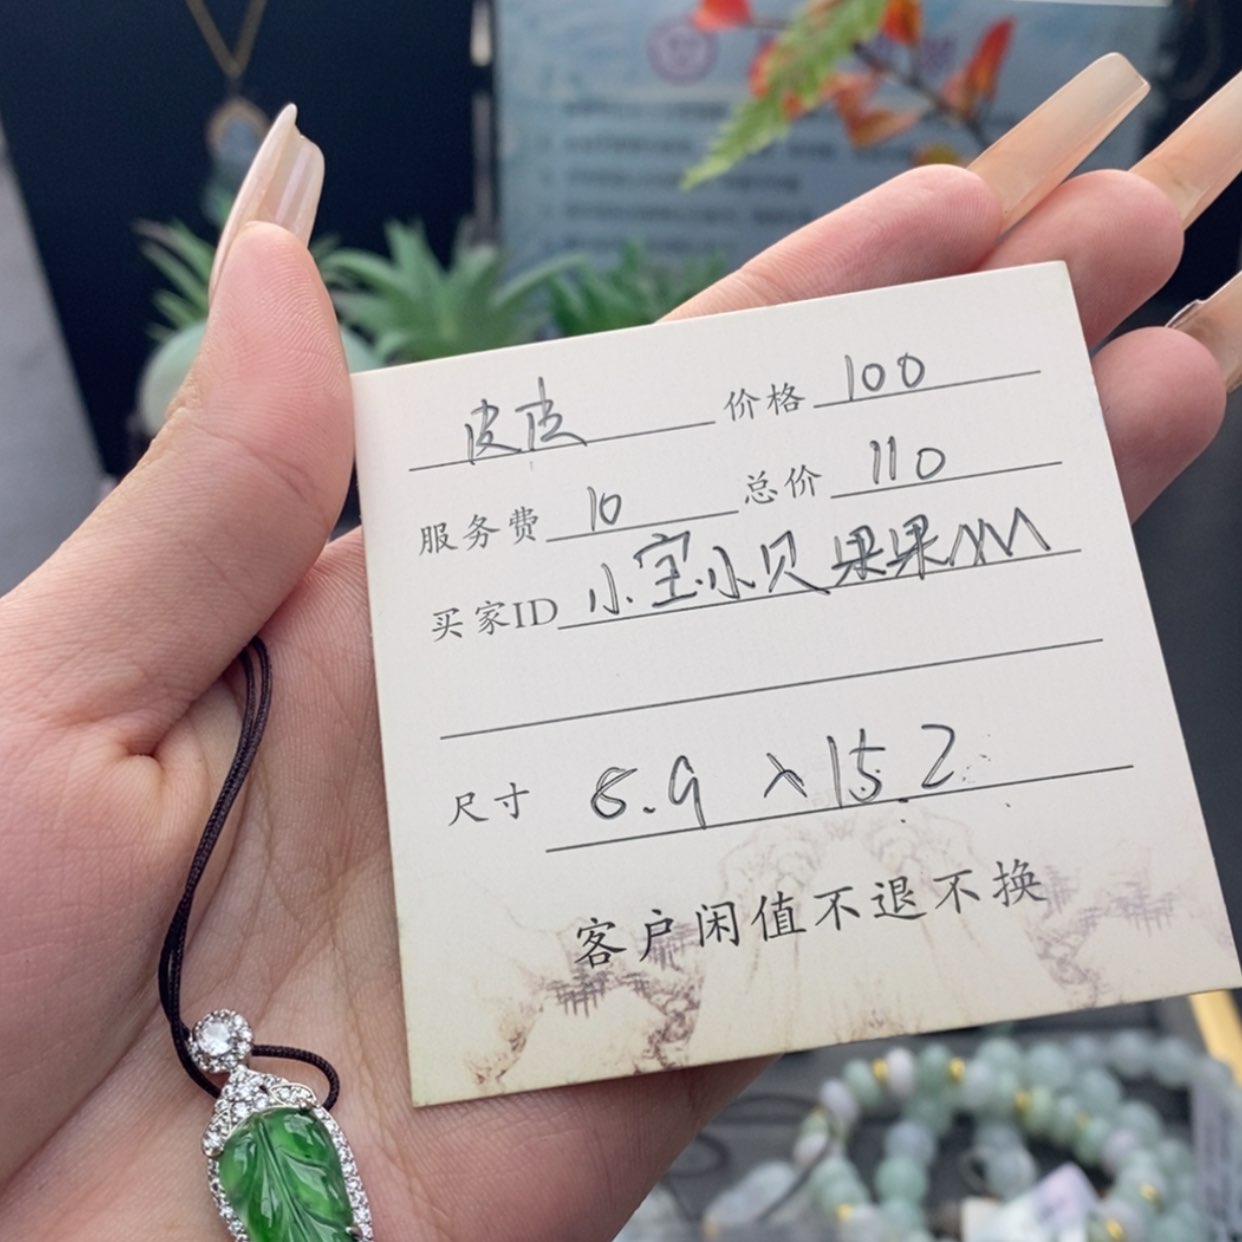 皮皮 价格 100
服务费 10 总价 110
买家ID 小宝小贝果果MM
尺寸 8.9 × 15.2
客户闲值不退不换